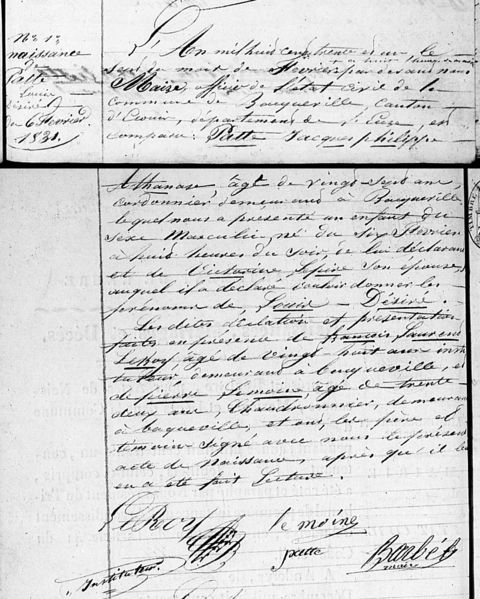 N° 13
naissance
de
Patte
Louis
Désiré
du 6 Février
1831.
L'An mil huit cent trente et un, le
Sept du mois de Février par devant nous
Maire, officier de l'état civil de la
Commune de Bacqueville, Canton
d'Ecouis, département de l'Eure, est
comparu Patte Jacques philippe
Athanase, âgé de vingt-sept ans,
cordonnier demeurant à Bacqueville
lequel nous a présenté un enfant du
sexe Masculin, né du Six Février
à huit heures du soir, de lui déclarant
et de Victorine Lepine son épouse,
auquel il a déclaré vouloir donner les
prénoms de Louis - Désiré. -
Les dites déclaration et présentation
faites en présence de françois Laurent
LeRoy âgé de vingt-huit ans insti
tuteur demeurant à Bacqueville, et
de pierre Lemoine, âgé de trente
deux ans Chaudronnier, demeurant
à bacqueville, et ont, les père et
témoins signé avec nous le présent
acte de Naissance, après que il leur
en a été fait Lecture.
LeRoy
lemoine
patte
Barbét
maire
Instituteur.